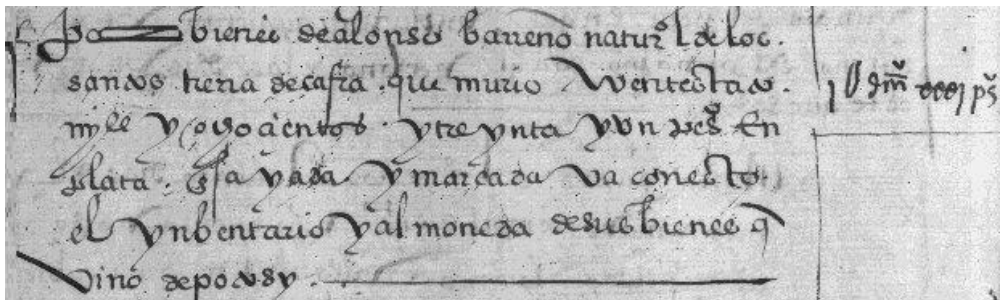 bienes de alonso barreno natural de los
santos tierra de cafra . que murio yntestado
myll y ochocientos y treynta y un pesos En
plata . Ensayada y marcada va con esto
el ynbentario y almoneda de sus bienes q
vino de potosy